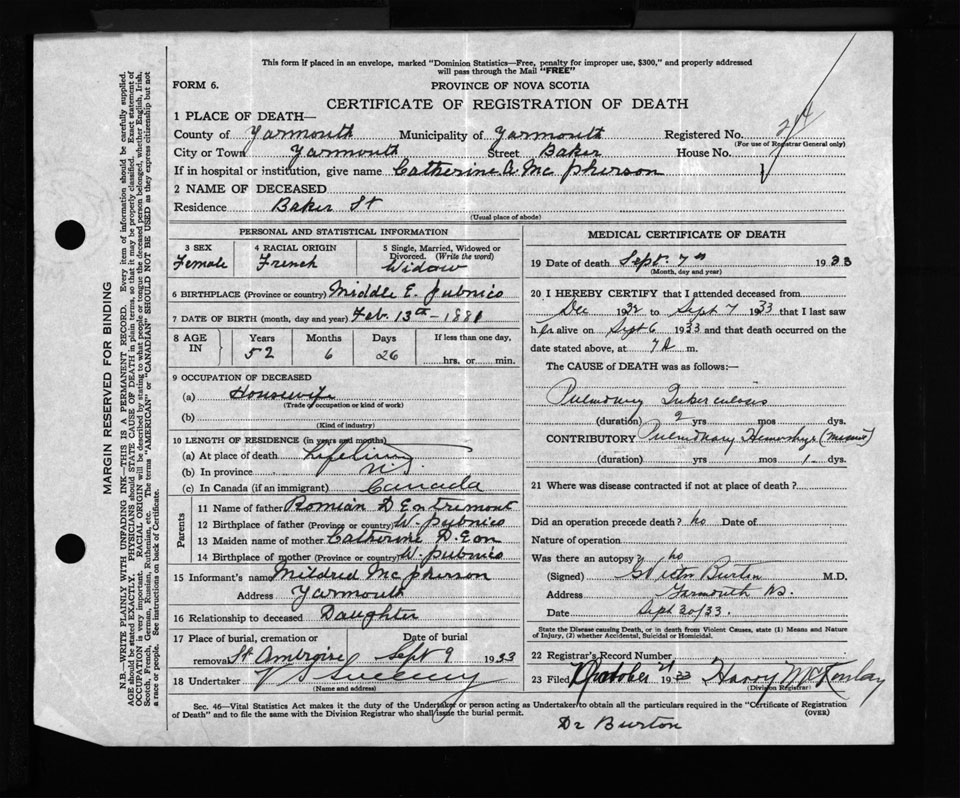 This form if placed in an envelope, marked "Dominion Statistics—Free, penalty for improper use, $300," and properly addressed
will pass through the Mail "FREE"
FORM 6.
PROVINCE OF NOVA SCOTIA
CERTIFICATE OF REGISTRATION OF DEATH
1 PLACE OF DEATH—
County of Yarmouth Municipality of Yarmouth Registered No.
(For use of Registrar General only)
City or Town Yarmouth Street Baker House No.
If in hospital or institution, give name Catherine A. Mc pherson
2 NAME OF DECEASED
Residence Baker St
(Usual place of abode)
PERSONAL AND STATISTICAL INFORMATION
3 SEX Female
4 RACIAL ORIGIN French
5 Single, Married, Widowed or Divorced. (Write the word) Widow
6 BIRTHPLACE (Province or country) Middle E. pubnico
7 DATE OF BIRTH (month, day and year) Feb. 13th - 1881
8 AGE IN Years 52 Months 6 Days 26 If less than one day, hrs. or min.
9 OCCUPATION OF DECEASED
(a) Housewife
(Trade occupation or kind of work)
(b)
(Kind of industry)
10 LENGTH OF RESIDENCE (in years and months)
(a) At place of death
(b) In province
(c) In Canada (if an immigrant) Canada
Parents
11 Name of father Romian D Entremont
12 Birthplace of father (Province or country) W. pubnico
13 Maiden name of mother Catherine D. Eon
14 Birthplace of mother (Province or country) W. pubnico
15 Informant's name Mildred Mc pherson
Address Yarmouth
16 Relationship to deceased Daughter
17 Place of burial, cremation or removal St. Ambroise Date of burial Sept 9 1933
18 Undertaker V S Sweeny
(Name and address)
MEDICAL CERTIFICATE OF DEATH
19 Date of death Sept. 7th 1933
(Month, day and year)
20 I HEREBY CERTIFY that I attended deceased from
Dec 1932 to Sept 7 1933 that I last saw
her alive on Sept 6 1933 and that death occurred on
date stated above, at 7 a m.
The CAUSE of DEATH was as follows:—
Pulmonary Tuberculosis
(duration) 2 yrs mos dys.
CONTRIBUTORY Pulmonary Hemorrhage
(duration) yrs mos 1 dys.
21 Where was disease contracted if not at place of death?
Did an operation precede death? no Date of
Nature of operation
Was there an autopsy? no
(Signed) Burton M.D.
Address Yarmouth NS.
Date Sept 20/33.
State the Disease causing Death, or in death from Violent Causes, state (1) Means and Nature
of Injury, (2) whether Accidental, Suicidal or Homicidal.
22 Registrar's Record Number
23 Filed October 21 1933 Harry McKinlay
(Division Registrar)
Sec. 46—Vital Statistics Act makes it the duty of the Undertaker or person acting as Undertaker to obtain all the particulars required in the "Certificate of Registration
of Death" and to file the same with the Division Registrar who shall issue the burial permit. (OVER)
Dr Burton
MARGIN RESERVED FOR BINDING
N.B.—WRITE PLAINLY WITH UNFADING INK—THIS IS A PERMANENT RECORD. Every item of information should be carefully supplied.
AGE should be stated EXACTLY. PHYSICIANS should STATE CAUSE OF DEATH in plain terms, so that it may be properly classified. Exact statement of
OCCUPATION is very important. RACIAL ORIGIN will be described by stating to what people or tongue the deceased person belonged, whether English, Irish,
Scotch, French, German, Russian, Ruthenian, etc. The terms "AMERICAN" or "CANADIAN" SHOULD NOT BE USED as they express citizenship but not
a race or people. See instructions on back of Certificate.